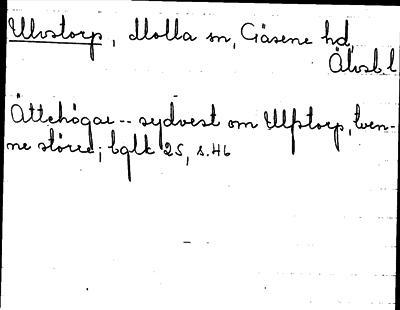 Ulvstorp, Molla sn, Gäsene hd,
Älvsb. l
Ättehögar -- sydvest om Ulfstorp, tven-
ne större; bglk 25, s. 46